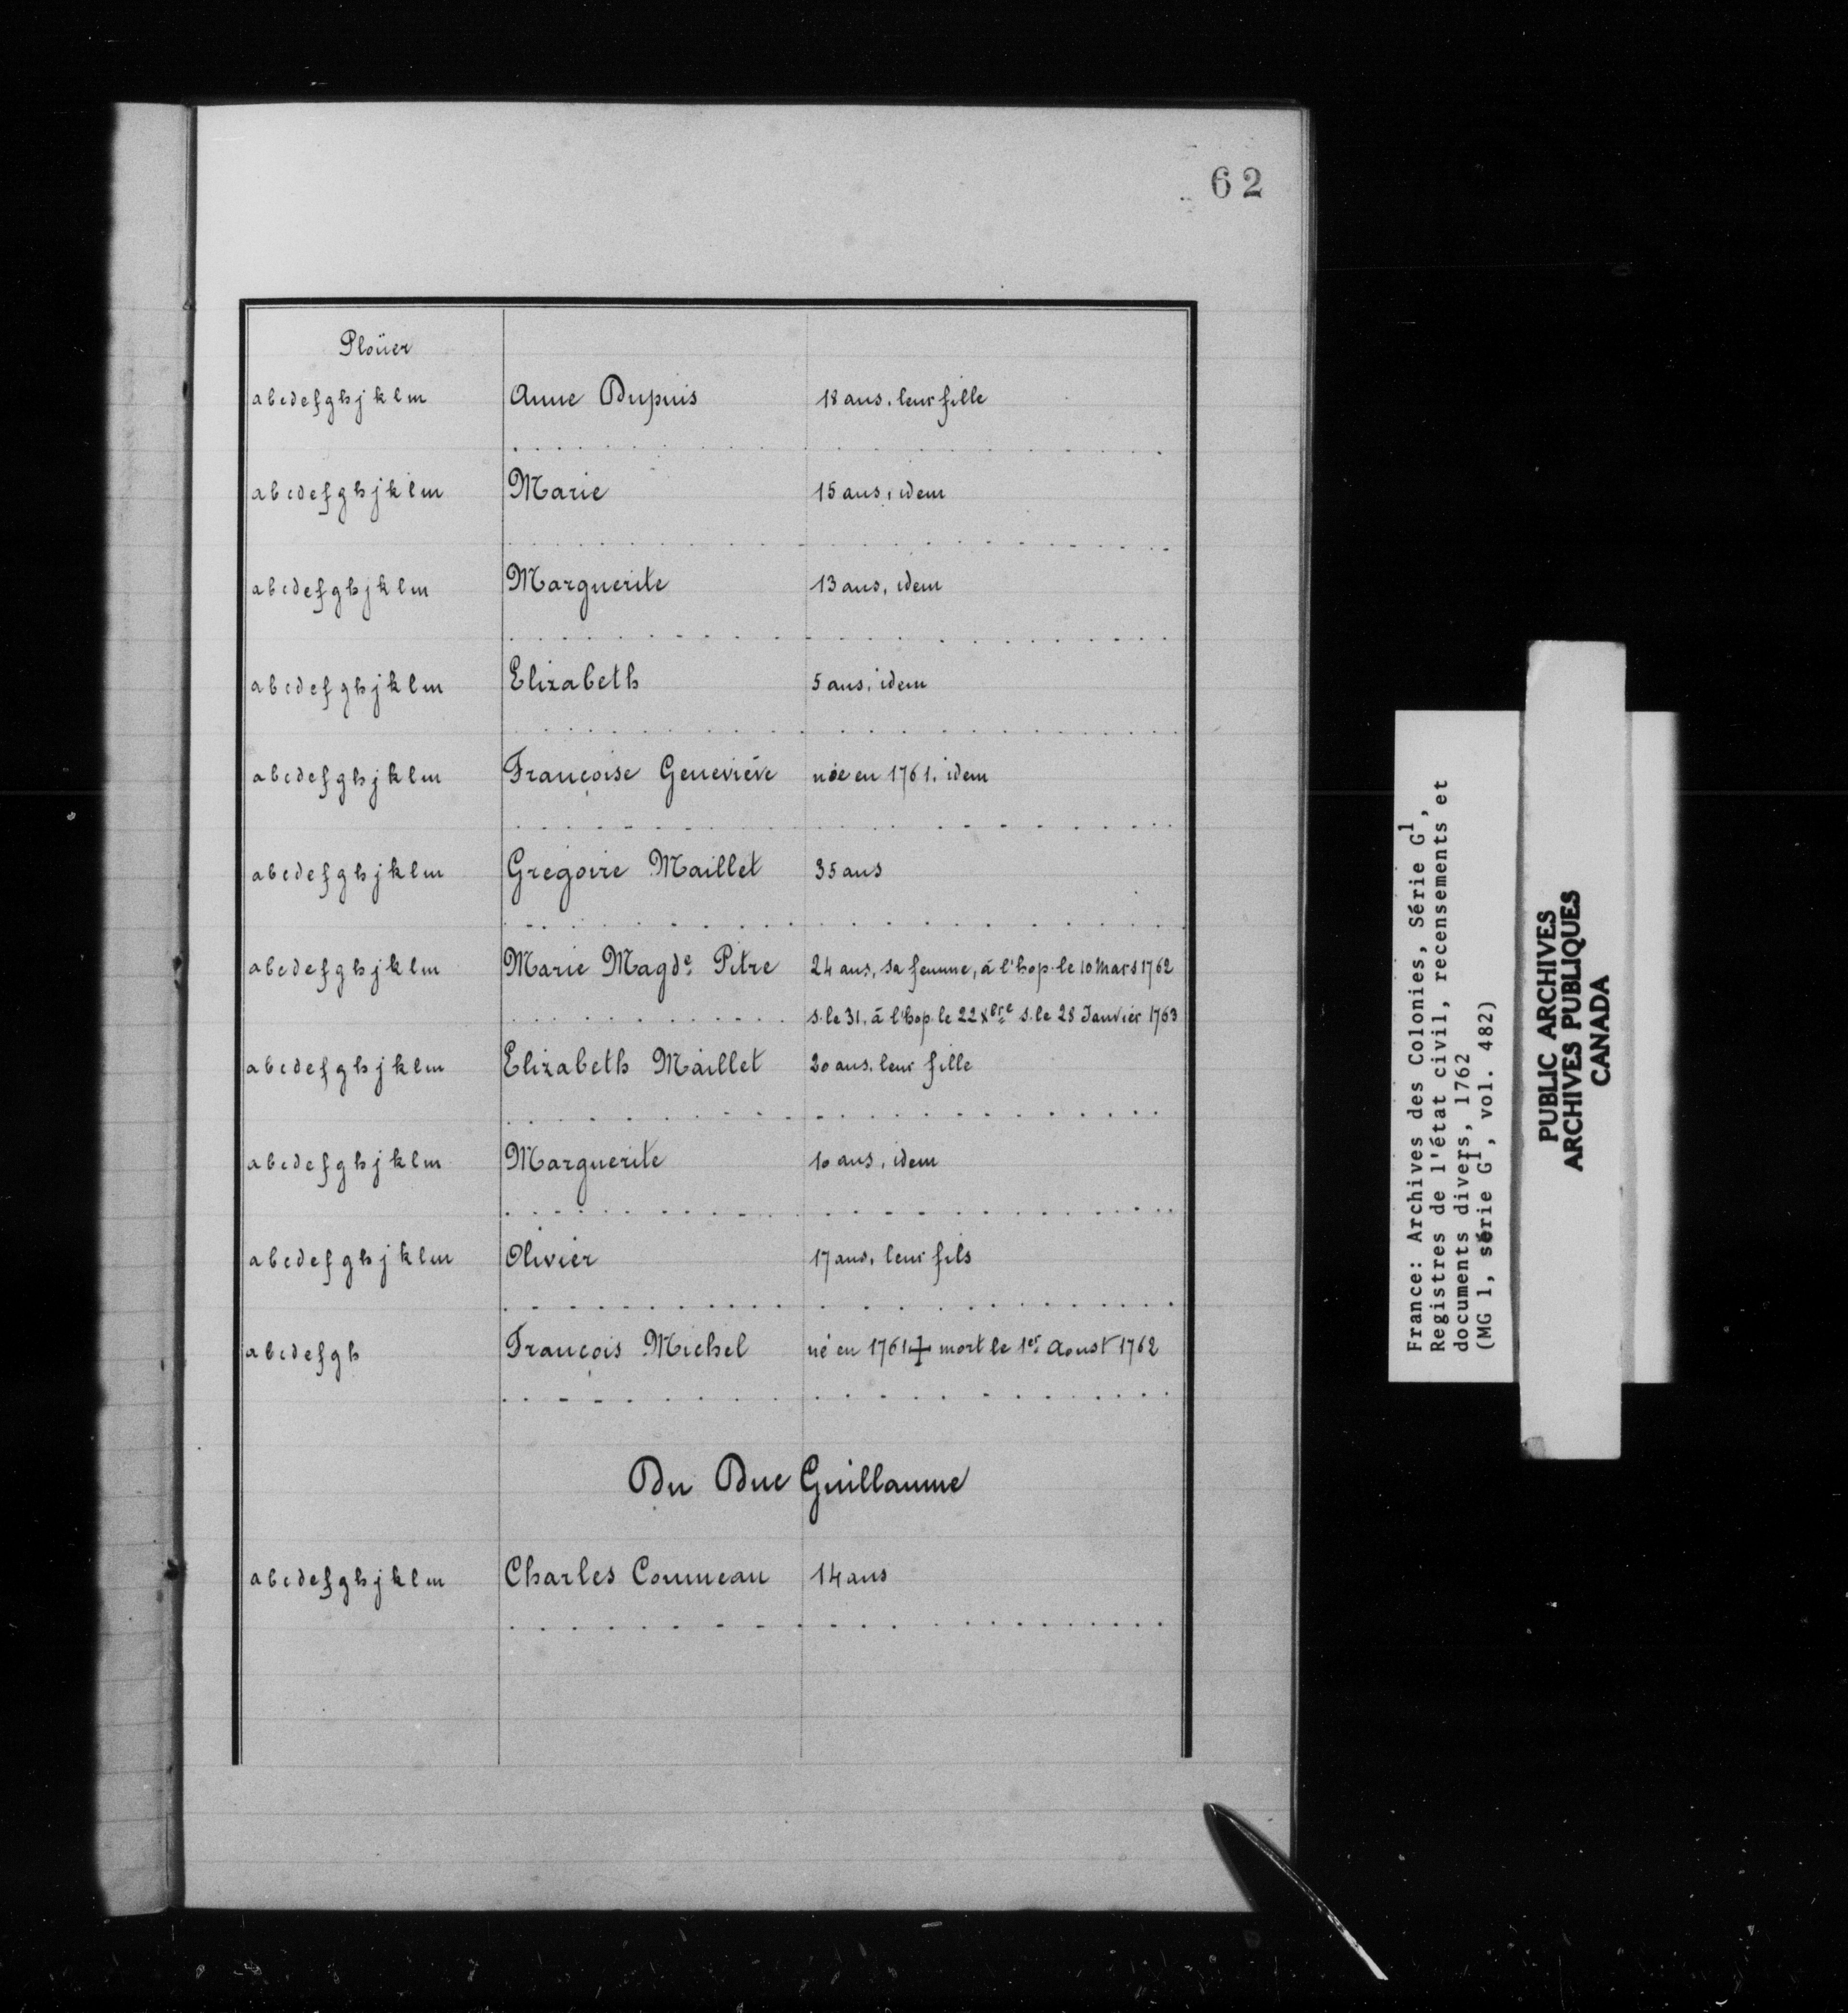 62
Ploüer
abcdefghjklm Anne Dupuis 18 ans, leur fille
abcdefghjklm Marie 15 ans, idem
abcdefghjklm Marguerite 13 ans, idem
abcdefghjklm Elizabeth 5 ans, idem
abcdefghjklm Françoise Geneviéve née en 1761, idem
abcdefghjklm Gregoire Maillet 35 ans
abcdefghjklm Marie Magde Pitre 24 ans, sa femme, á l'hop. le 10 Mars 1762
s. le 31, á l'hop. le 22 Xbre s. le 28 Janvier 1763
abcdefghjklm Elizabeth Maillet 20 ans, leur fille
abcdefghjklm Marguerite 10 ans, idem
abcdefghjklm Olivier 17 ans, leur fils
abcdefgh François Michel né en 1761 + mort le 1er Aoust 1762
Du Duc Guillaume
abcdefghjklm Charles Commeau 14 ans
France: Archives des Colonies, Série G1,
Registres de l'état civil, recensements et
documents divers, 1762
(MG 1, série G1, vol. 482)
PUBLIC ARCHIVES
ARCHIVES PUBLIQUES
CANADA